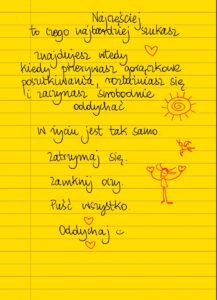 Najczęściej
to czego najbardziej szukasz
znajdujesz wtedy
kiedy przerywasz gorączkowe
poszukiwania, rozluźniasz się
i zaczynasz swobodnie
oddychać.
W życiu jest tak samo.
Zatrzymaj się.
Zamknij oczy.
Puść wszystko.
Oddychaj